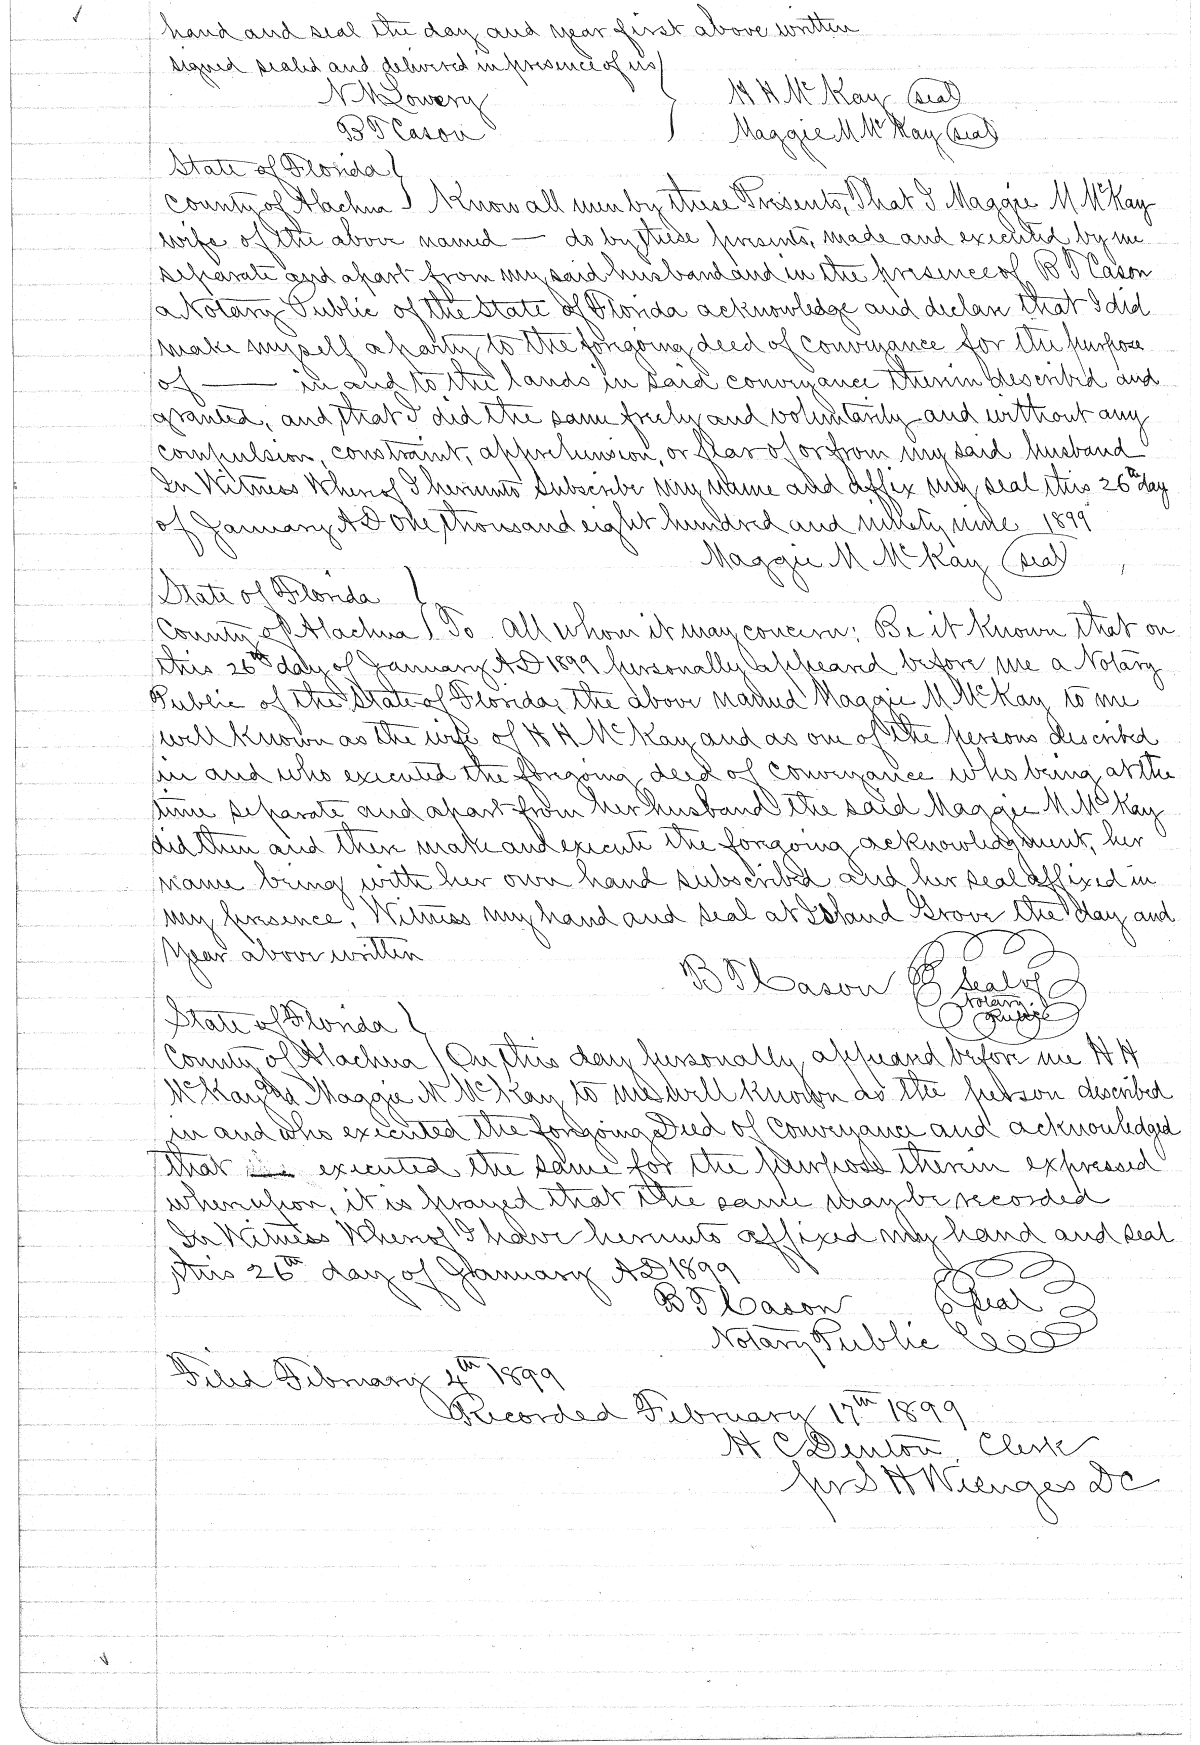 hand and seal the day and year first above written
signed sealed and delivered in presence of us
N M Lowery H H McKay (seal)
B T Cason Maggie M McKay (seal)
State of Florida
County of Alachua Know all men by these Presents, That I Maggie M McKay
wife of the above named — do by these presents, made and executed by me
separate and apart from my said husband and in the presence of B T Cason
a Notary Public of the State of Florida acknowledge and declare that I did
make myself a party to the forgoing deed of conveyance for the purpose
of —— in and to the lands in said conveyance therein described and
granted, and that I did the same freely and voluntarily and without any
compulsion, constraint, apprehension, or fear of or from my said husband
In Witness Whereof I hereunto subscribe my name and affix my seal this 26th day
of January A D One thousand eight hundred and ninety nine 1899
Maggie M McKay (seal)
State of Florida
County of Alachua To All whom it may concern: Be it Known that on
this 26th day of January A D 1899 personally appeared before me a Notary
Public of the State of Florida, the above named Maggie M McKay to me
well known as the wife of H H McKay and as one of the persons described
in and who executed the foregoing deed of conveyance who being at the
time separate and apart from her husband the said Maggie M McKay
did then and there make and execute the foregoing acknowledgment, her
name being with her own hand subscribed and her seal affixed in
my presence. Witness my hand and seal at Island Grove the day and
Year above written
B T Cason Seal of
Notary
Public
State of Florida
County of Alachua On this day personally appeared before me H H
McKay and Maggie M McKay to me well known as the person described
in and who executed the forgoing Deed of Conveyance and acknowledged
that executed the same for the purpose therein expressed
whereupon, it is prayed that the same may be recorded
In Witness Whereof I have hereunto affixed my hand and seal
this 26th day of January A D 1899
B T Cason Seal
Notary Public
Filed February 4th 1899
Recorded February 17th 1899
H C Denton, Clerk
per S H Wienges D C